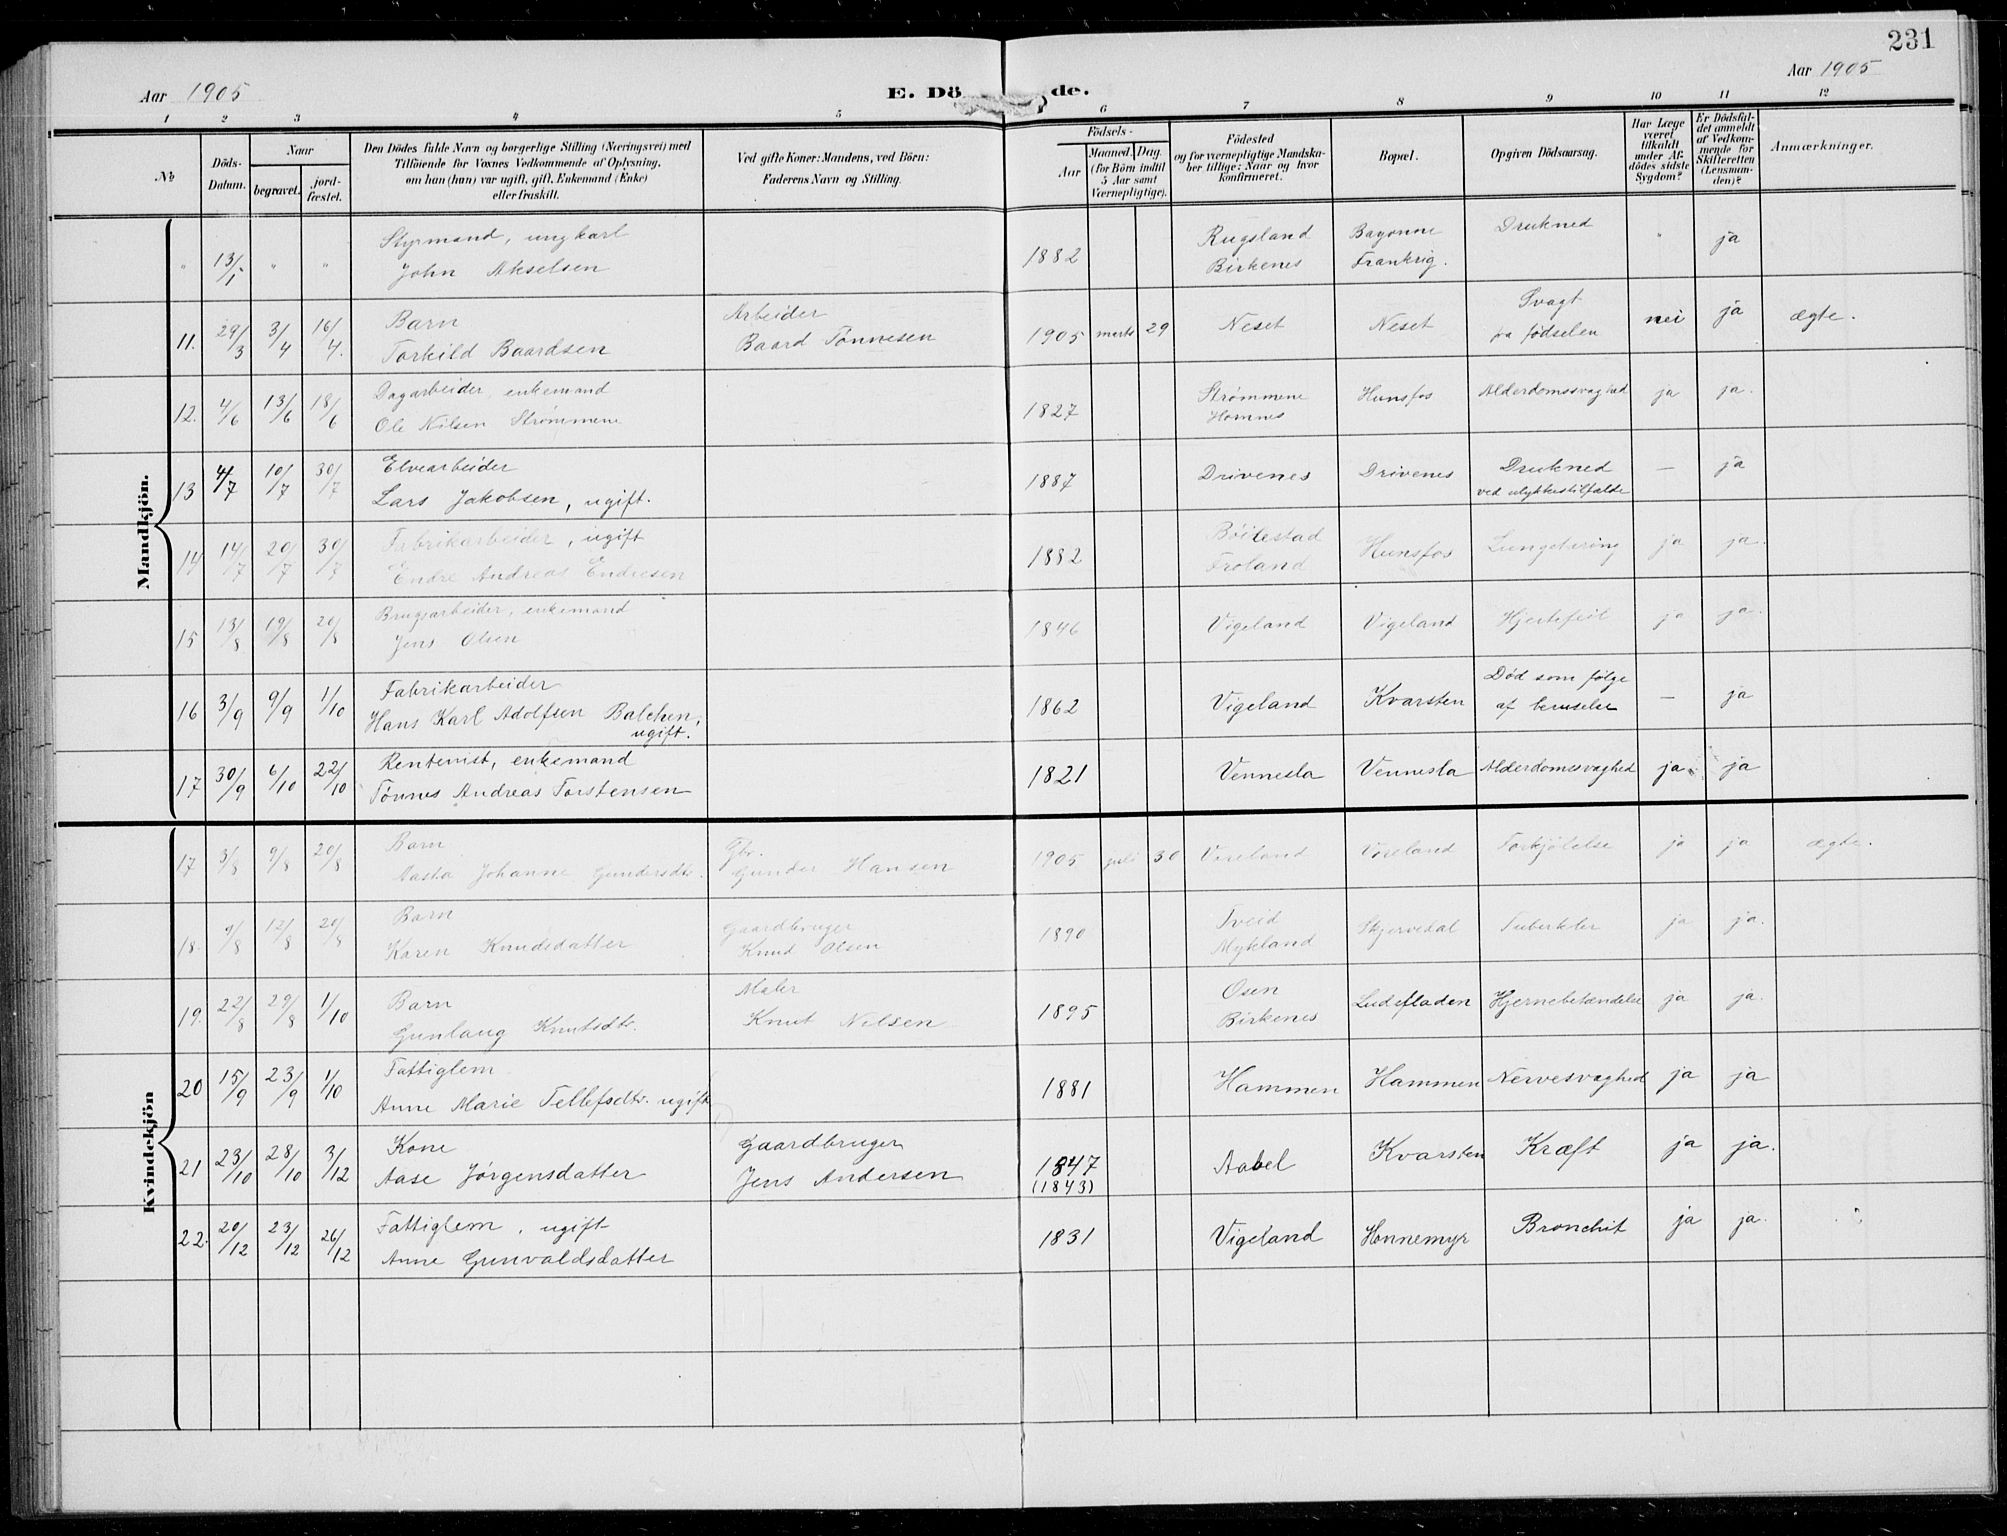 231
Aar 1905
E. Dö de.
Aar 1905
1 2 3 4 5 6 7 8 9 10 11 12
No
Döds-Datum.
Naar
begravet.
jord-fæstet.
Den Dödes fulde Navn og borgerlige Stilling (Næringsvei) med
Tilföiende for Voxnes Vedkommende af Oplysning,
om han (hun) var ugift, gift, Enkemand (Enke)
eller fraskilt.
Ved gifte Koner: Mandens, ved Börn:
Faderens Navn og Stilling.
Födsels-
Aar
Maaned. Dag.
(for Börn indtil
5 Aar samt
Værnepligtige).
Födested
og for værnepligtige Mandska-
ber tillige: Naar og hvor
konfirmeret.
Bopæl.
Opgiven Dödsaarsag.
Har Læge
været
tilkaldt
under Af-
dödes sidste
Sygdom?
Er Dödsfal-
det anmeldt
af Vedkom-
mende for
Skifteretten
(Lensman-
den)?
Anmærkninger.
Mandkjön.
Styrmand, ungkarl Rugsland Bayonne Druknet
" 13/1 " " John Akselsen 1882 Birkenes Frankrig. " ja
Barn Arbeider Svagt
11. 29/3 3/4 16/4. Torkild Baardsen Baard Tønnesen 1905 marts 29 Neset Neset fra fødselen nei ja ægte.
Dagarbeider, enkemand Strømmene
12. 4/6 13/6 18/6 Ole Nilsen Strømmene 1827 Homnes Hunsfos Alderdomssvaghed ja ja.
Elvearbeider Druknet
13 4/7 10/7 30/7 Lars Jakobsen, ugift. 1887 Drivenes Drivenes ved ulykkestilfælde — ja
Fabrikarbeider, ugift Bøilestad
14 14/7 20/7 30/7 Endre Andreas Endresen 1882 Froland Hunsfos Lungetæring ja ja.
Brugsarbeider, enkemand
15 13/8 19/8 20/8 Jens Olsen 1846 Vigeland Vigeland Hjertefeil ja ja.
Fabrikarbeider Død som følge
16 3/9 9/9 1/10 Hans Karl Adolfsen Balchen, ugift. 1862 Vigeland Kvarsten af beruselse — ja
Rentenist, enkemand
17 30/9 6/10 22/10 Tønnes Andreas Torstensen 1821 Vennesla Vennesla Alderdomssvaghed ja ja
Kvindekjön
Barn Gbr.
17 3/8 9/8 20/8 Aasta Johanne Gundersdtr. Gunder Hansen 1905 juli 30 Voreland Voreland Forkjølelse ja ja ægte.
Barn Gaardbruger Tveid
18. 9/8 12/8 20/8 Karen Knudsdatter Knud Olsen 1890 Mykland Skjervedal Tuberkler ja ja.
Barn Maler Osen
19. 22/8 29/8 1/10 Gunlaug Knutsdtr. Knut Nilsen 1895 Birkenes Ludefladen Hjernebetændelse ja ja.
Fattiglem
20 15/9 23/9 1/10 Anne Marie Tellefsdtr. ugift 1881 Hammen Hammen Nervesvaghed ja ja
Kone Gaardbruger
21 23/10 28/10 3/12 Aase Jørgensdatter Jens Andersen 1847 (1843) Aabel Kvarsten Kræft ja ja.
Fattiglem, ugift
22. 20/12 23/12 26/12 Anne Gunvaldsdatter 1831 Vigeland Honnemyr Bronchit ja ja.